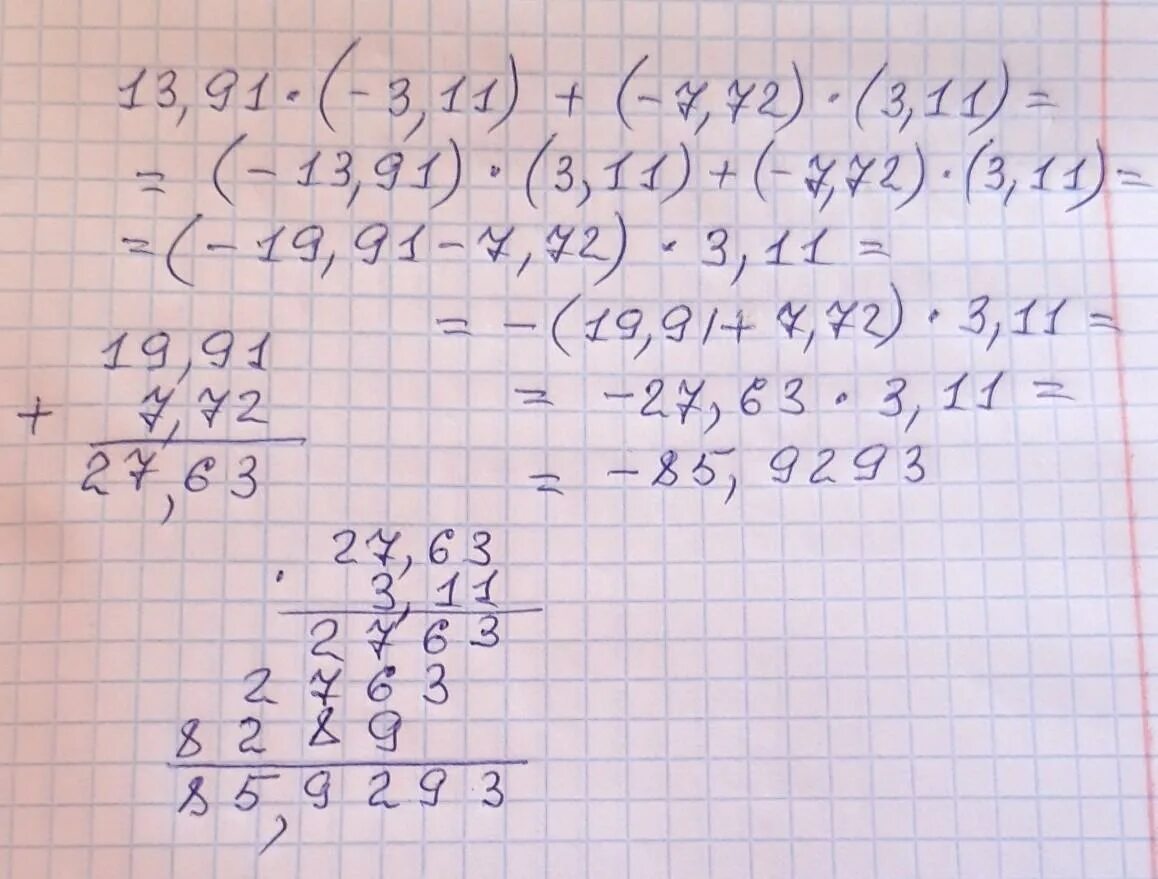 13,91·(-3,11) + (-7,72)·(3,11) =
= (-13,91)·(3,11)+(-7,72)·(3,11) =
= (-19,91-7,72)·3,11 =
= -(19,91+7,72)·3,11 =
= -27,63·3,11 =
= -85,9293
19,91
+ 7,72
27,63
27,63
· 3,11
2763
2763
8289
85,9293